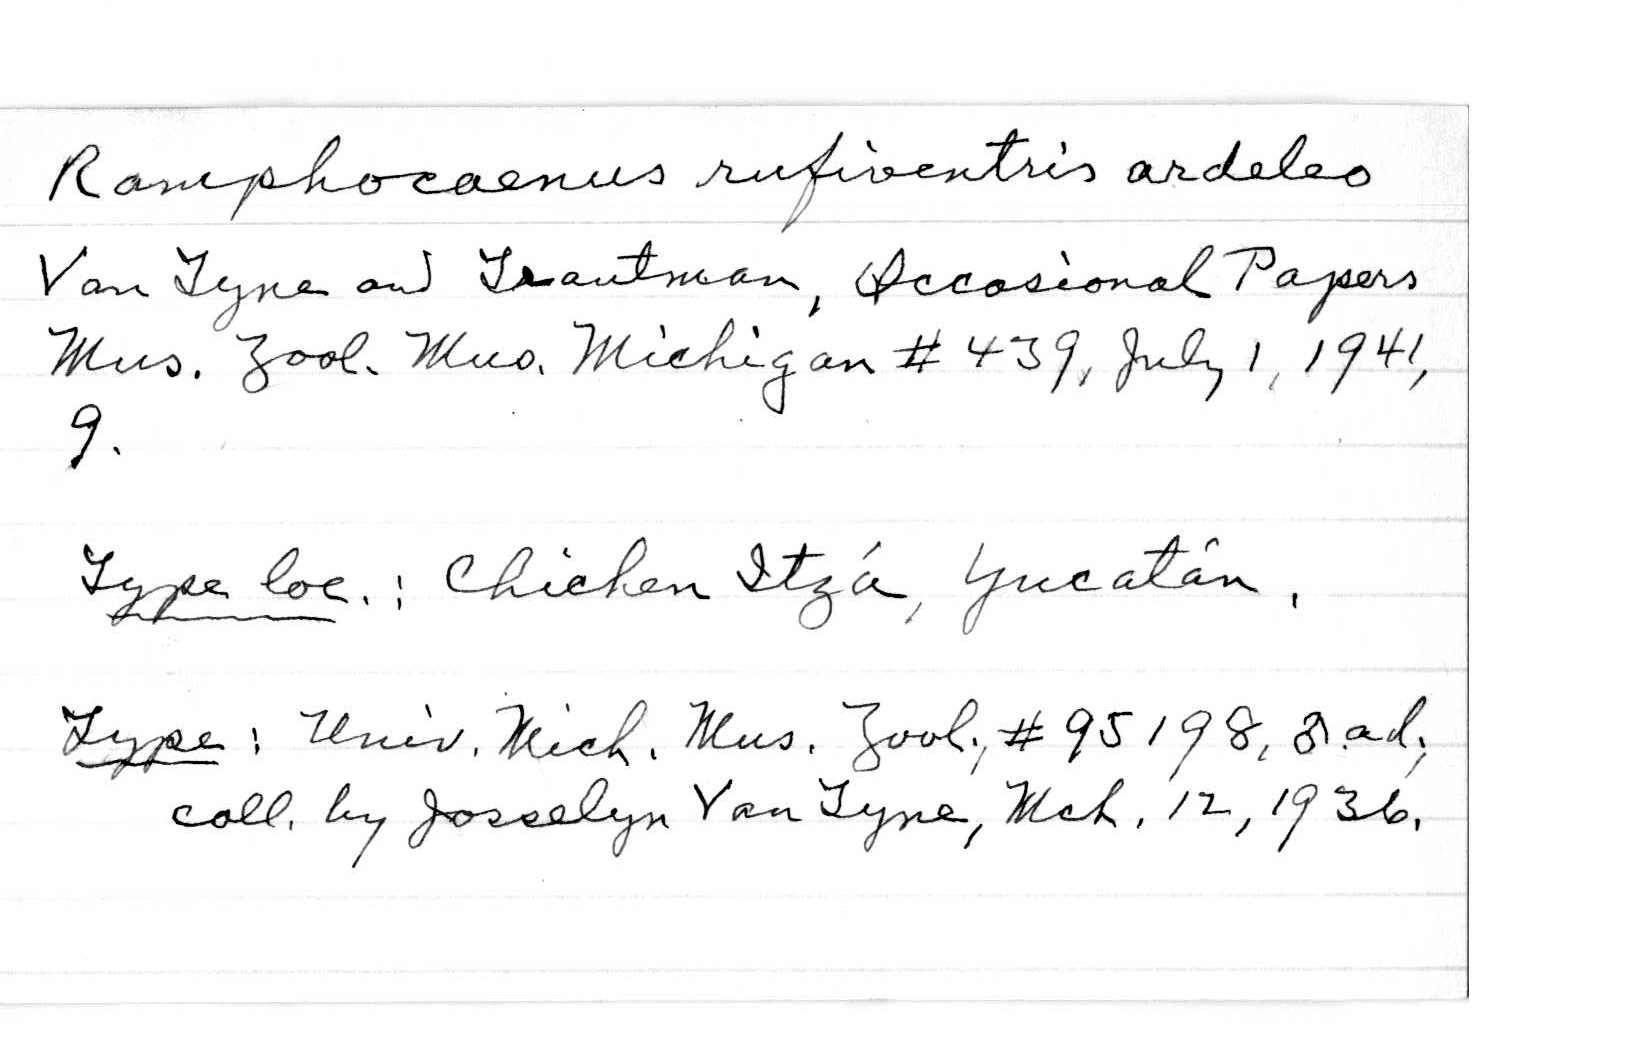 Ramphocaenus rufiventris ardeleo
Van Tyne and Trautman, Occasional Papers
Mus. Zool. Mus. Michigan # 439, July 1, 1941,
9.
Type loc.: Chichen Itzá, Yucatán.
Type: Univ. Mich. Mus. Zool., # 95198, ♂ ad.,
coll. by Josselyn Van Tyne, Mch. 12, 1936.